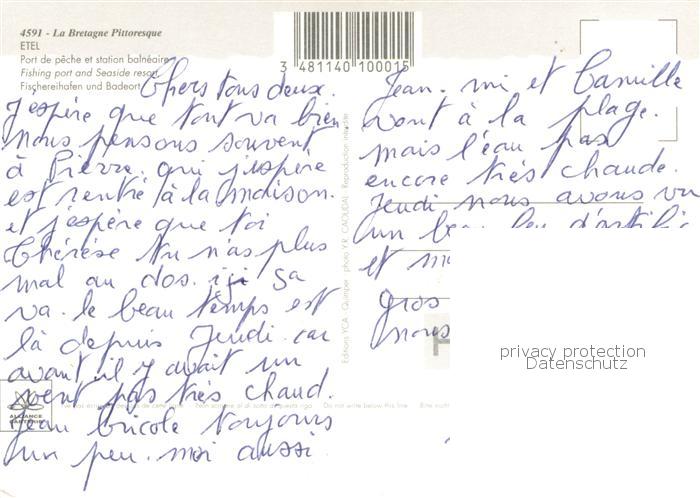 4591 - La Bretagne Pittoresque
ETEL
Port de pêche et station balnéaire
Fishing port and Seaside resort
Fischereihafen und Badeort
3 481140 100015
Chers tous deux.
J'espère que tout va bien
nous pensons souvent
à Pierre. qui j'espère
est rentré à la maison.
et j'espère que toi
Thérèse tu n'as plus
mal au dos. ici sa
va. le beau temps est
là depuis Jeudi. car
avant il y avait un
vent pas très chaud.
Jean bricole toujours
un peu. moi aussi.
Editions YCA - Quimper - photo Y.R. CAOUDAL Reproduction interdite
Jean. mi et Camille
vont à la plage.
mais l'eau pas
encore très chaude.
Jeudi nous avons vu
un feu d'artific
et
gros
nous
privacy protection
Datenschutz
ALLIANCE
Do not write below this line